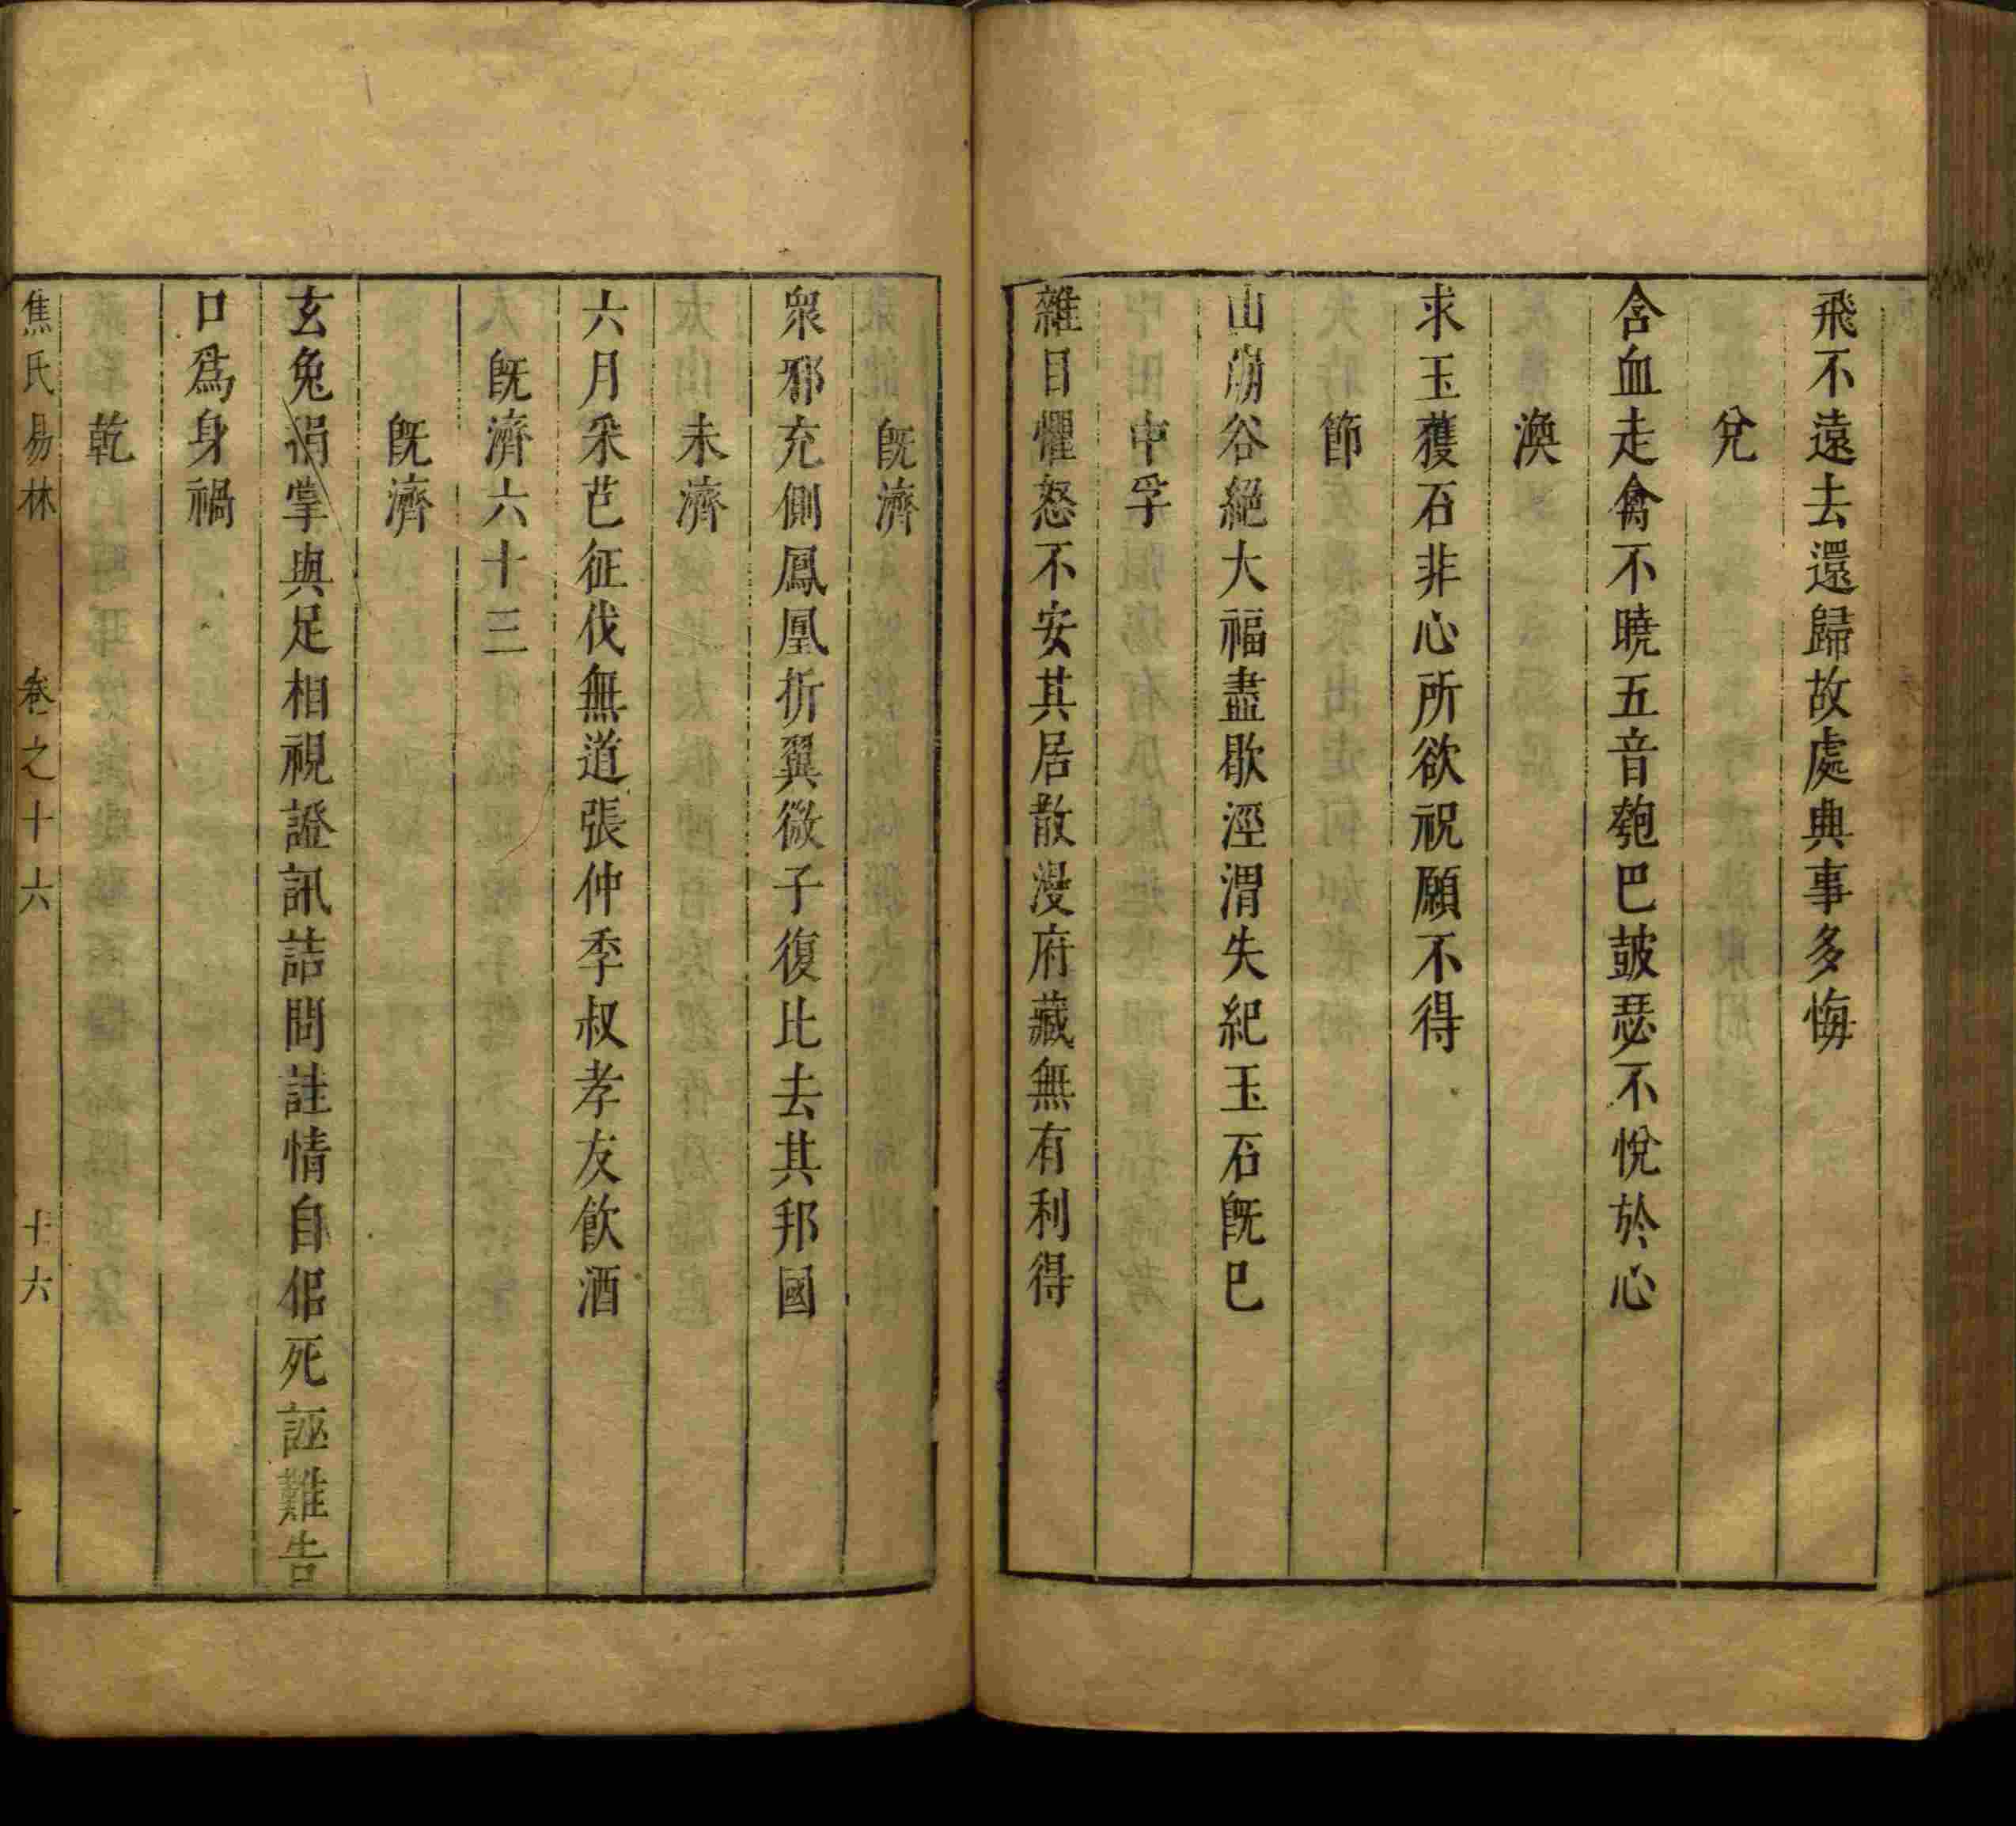 飛不遠去還歸故處典事多悔
兌
含血走禽不曉五音匏巴鼓瑟不悅於心
渙
求玉獲石非心所欲祝願不得
節
山崩谷絕大福盡歇涇渭失紀玉石旣巳
中孚
雜目懼怒不安其居散漫府藏無有利得
旣濟
衆邪充側鳳凰折翼微子復比去其邦國
未濟
六月采芑征伐無道張仲季叔孝友飲酒
旣濟六十三
旣濟
玄兔涓掌與足相視證訊詰問詿情自佀死誣難告
口爲身禍
乾
焦氏易林 卷之十六 十六